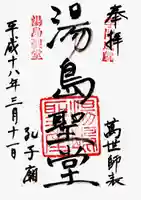 奉拝
萬世師表
湯島聖堂
孔子廟
平成十八年三月十一日